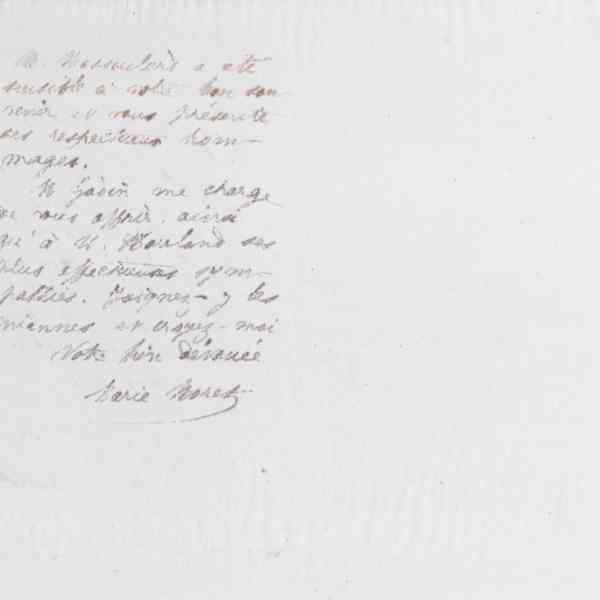 M. Massoulard a été
sensible à votre bon sou-
venir et vous présente
ses respectueux hom-
mages.
M Godin me charge
de vous offrir, ainsi
qu'à M. Borland ses
plus affectueuses sym-
pathies. Joignez-y les
miennes et croyez-moi
Votre bien dévouée
Marie Moret